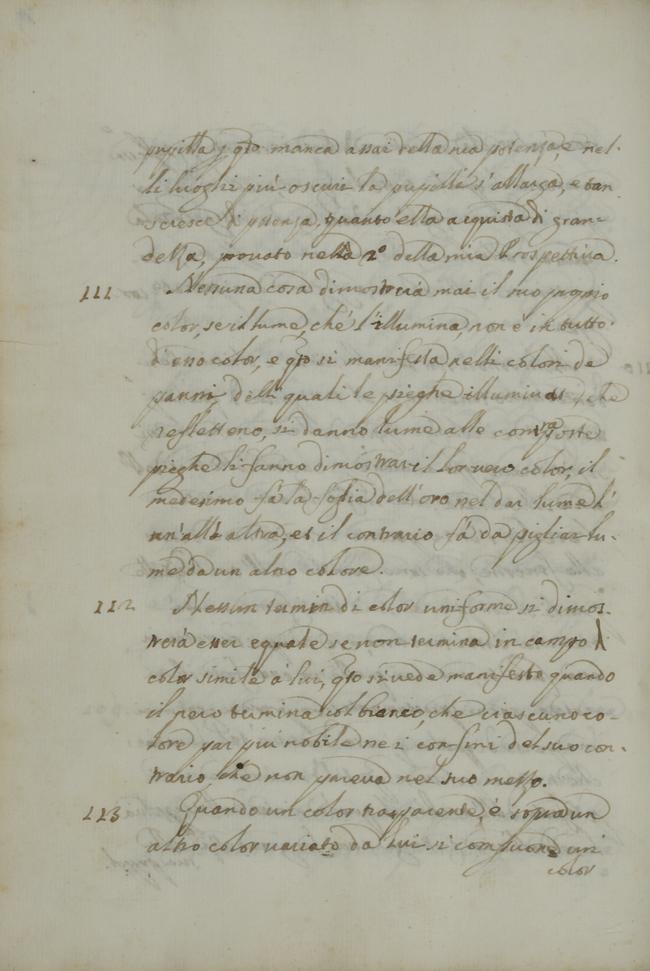 pupilla, q̃to manca assai della sua potenza, e nel-
li luoghi più oscuri la pupilla s'allarga, e tan
to cresce di potenza, quanto ella acquista di gran-
dezza, provato nella 2° della mia Prospettiva.
111 Nessuna cosa dimostrerà mai il suo proprio
color, se il lume, che l'illumina, non è in tutto
d'esso color, e q̃to si manifesta nelli colori de
panni, delli quali le pieghe illuminat che
refletteno, si danno lume alle composte
pieghe li fanno dimostrar il lor vero color, il
medesimo fà la foglia dell'oro nel dar lume l'
un'allà altra, et il contrario fà da pigliar lu-
me da un altro colore.
112 Nessun termin di color uniforme si dimos-
trerà esser equale se non termina in campo di
color simile à lui, q̃to si vede manifesto quando
il nero termina col bianco, che ciascuno co-
lore par più nobile nei confini del suo con-
trario, che non pareva nel suo mezzo.
113 Quando un color trasparente, è sopra un
altro color variato da lui si compone un
color